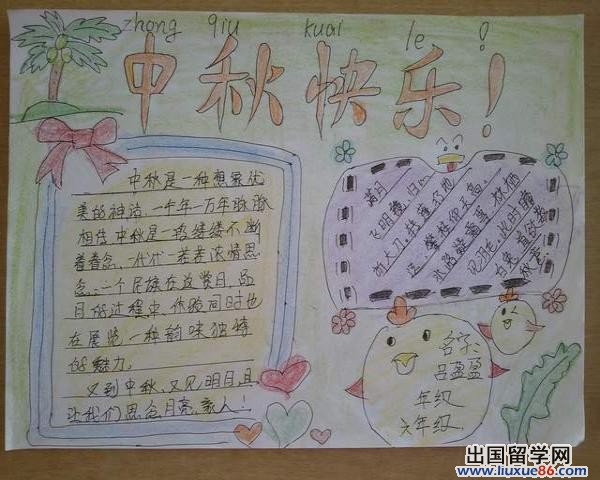 zhong qiu kuai le !
中秋快乐!
中秋是一种想象优
美的神话,一千年一万年脉脉
相传,中秋是一路缕缕不断
着眷念,一代代一茬茬浓情思
念,一个民族在这赏月、品
月的过程中,体验同时也
在展览一种韵味独特
的魅力。
又到中秋,又见明月,且
让我们思念月亮,亲人!
满月
飞明镜,归心
折大刀。转蓬行地
远,攀桂仰天高。
水路疑霜雪,林栖
见羽毛。此时瞻
白兔,直欲数
秋毫。
名字:
吕盈盈
年级
六年级
出国留学网
www.liuxue86.com